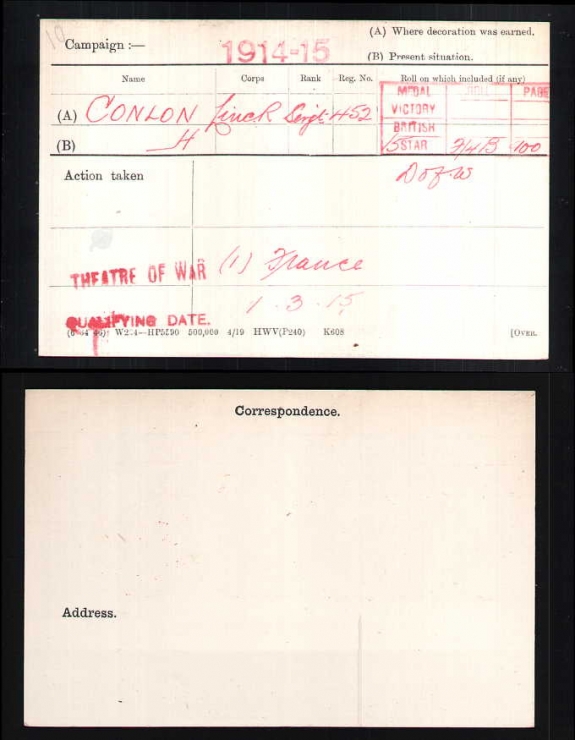 (A) Where decoration was earned.
Campaign :— 1914-15
(B) Present situation.
Name Corps Rank Reg. No. Roll on which included (if any)
MEDAL ROLL PAGE
(A) CONLON LincR Serjt 452
VICTORY
BRITISH
(B) H
15 STAR 100
Action taken
D of W
THEATRE OF WAR (1) France
1.3.15
QUALIFYING DATE.
500,000 4/19 HWV(P240) K608 [OVER.
Correspondence.
Address.